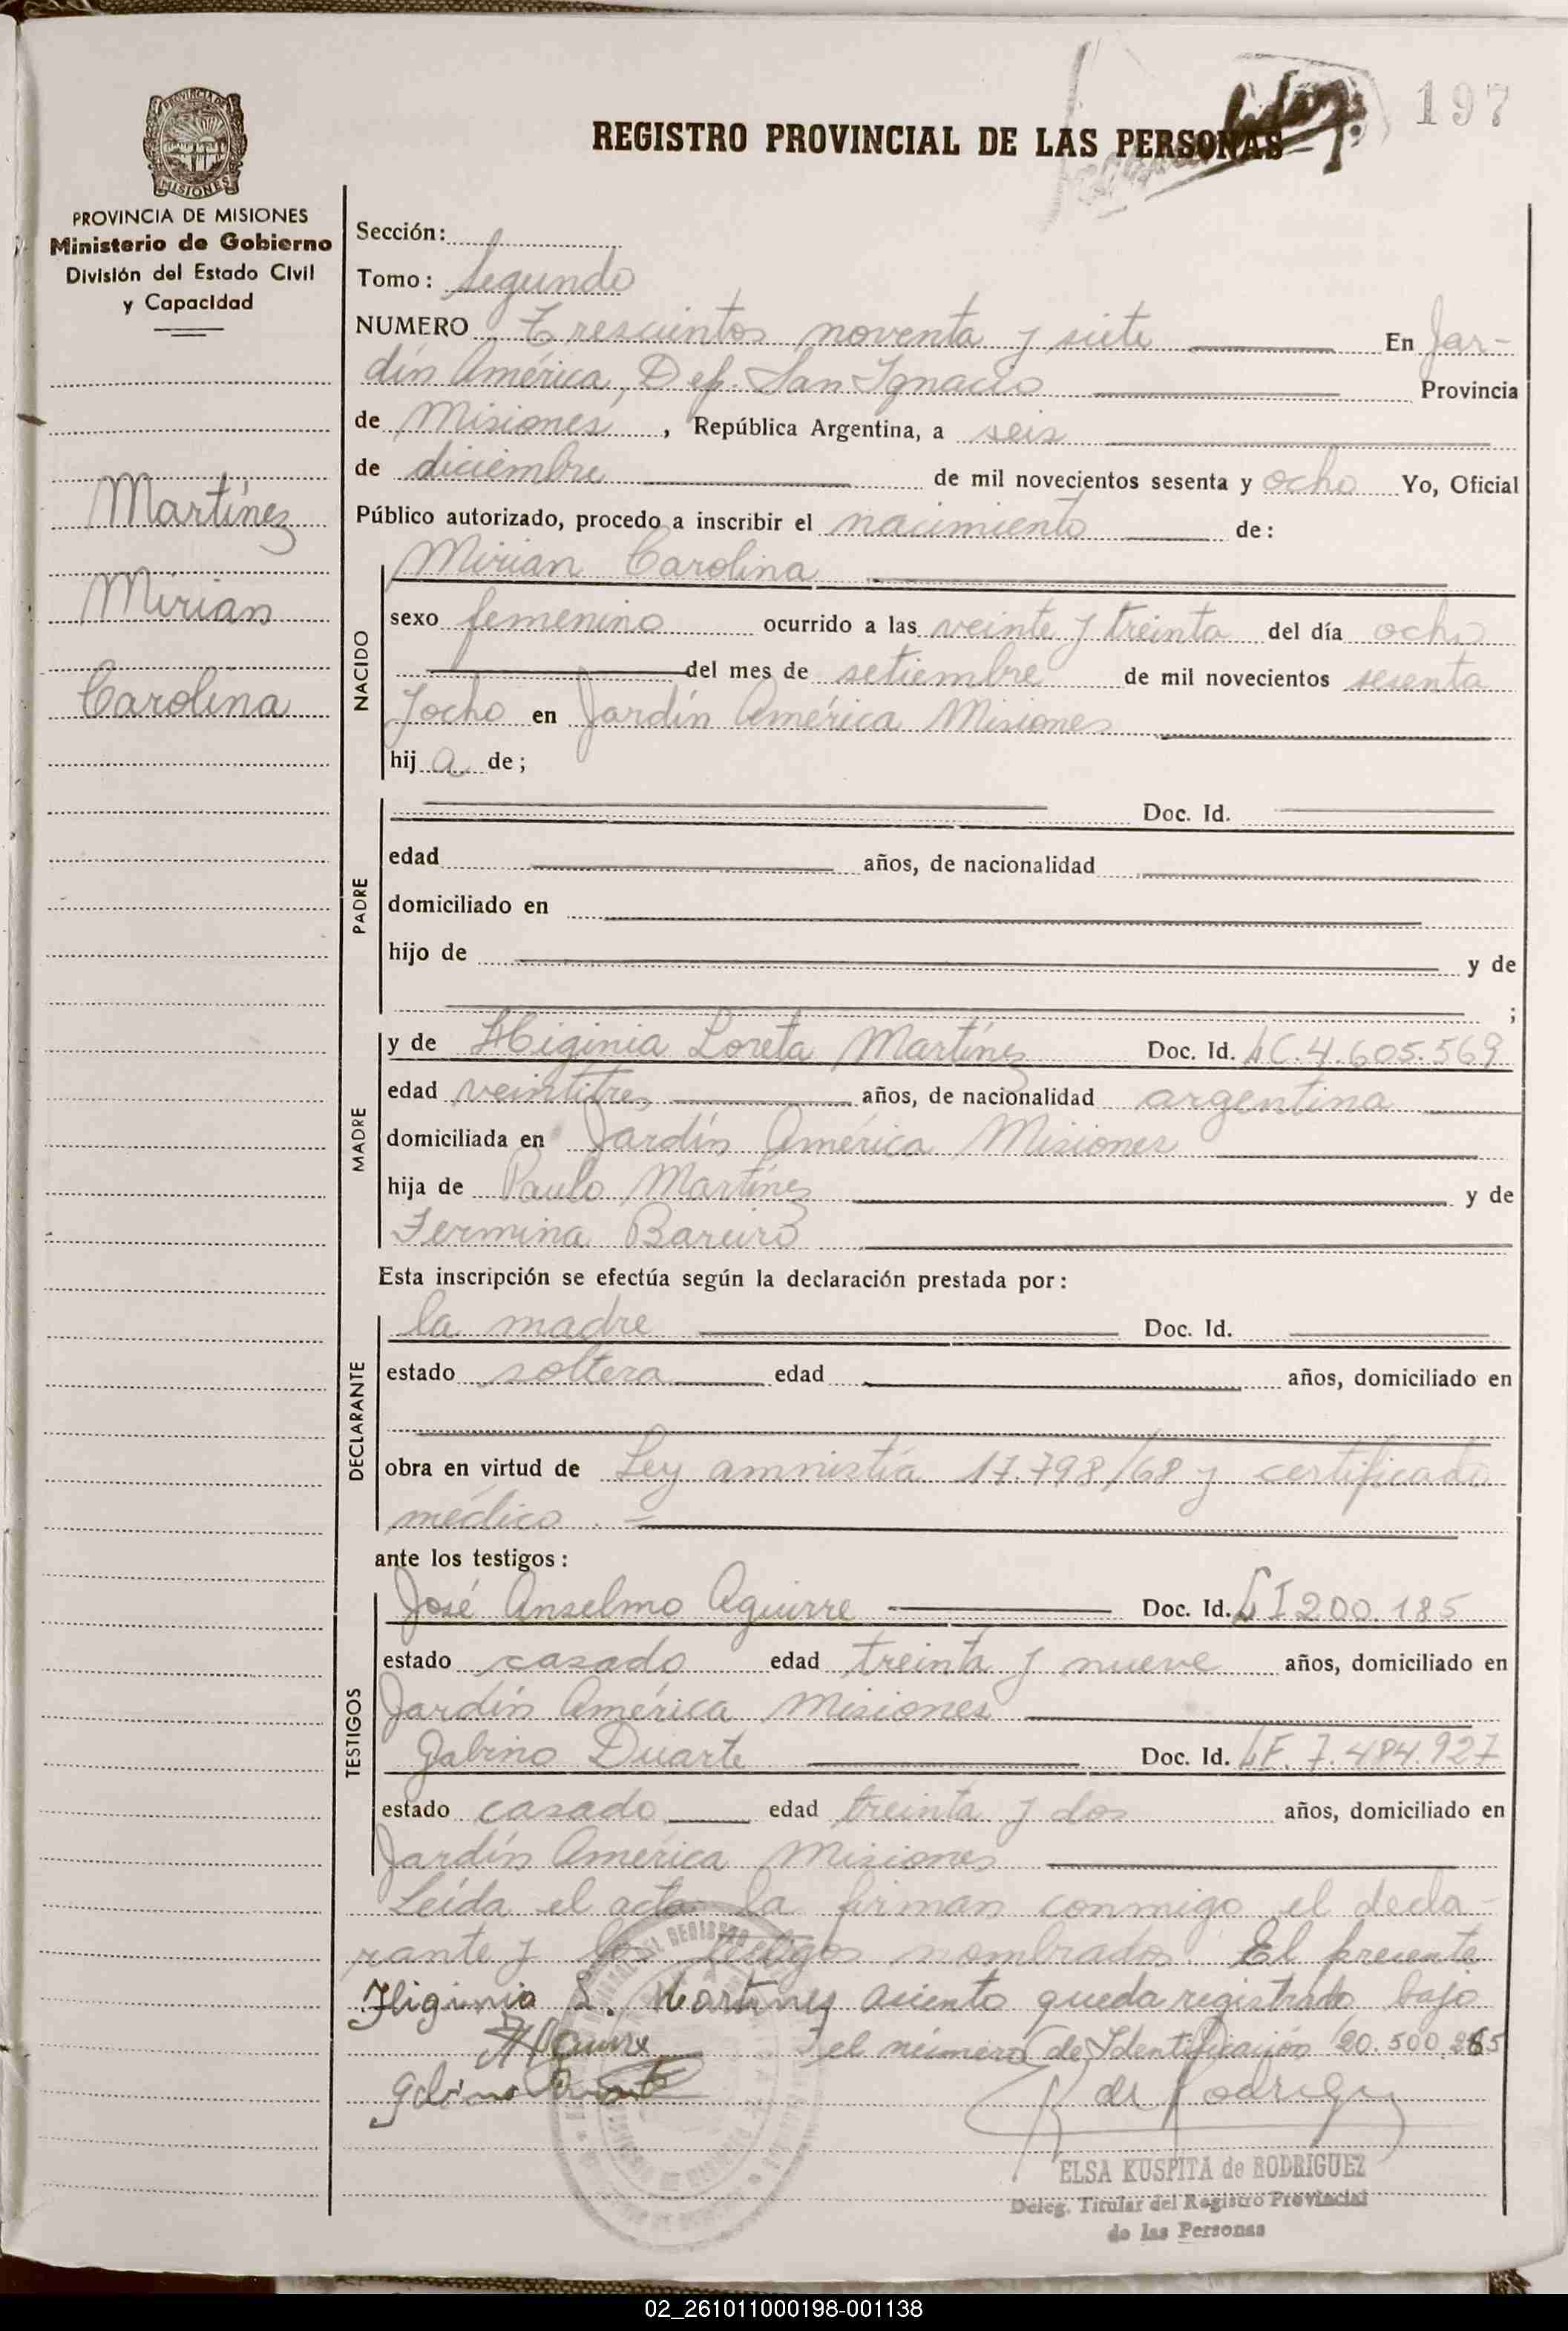 197
REGISTRO PROVINCIAL DE LAS PERSONAS
PROVINCIA DE MISIONES
Ministerio de Gobierno
División del Estado Civil
y Capacidad
Martínez
Mirian
Carolina
Sección:
Tomo: Segundo
NUMERO Trescientos noventa y siete En Jar-
dín América, Dep. San Ignacio Provincia
de Misiones, República Argentina, a seis
de diciembre de mil novecientos sesenta y ocho Yo, Oficial
Público autorizado, procedo a inscribir el nacimiento de:
NACIDO
Mirian Carolina
sexo femenino ocurrido a las veinte y treinta del día ocho
del mes de setiembre de mil novecientos sesenta
y ocho en Jardín América Misiones
hij a de;
PADRE
Doc. Id.
edad años, de nacionalidad
domiciliado en
hijo de y de
;
MADRE
y de Higinia Loreta Martínez Doc. Id. LC. 4.605.569
edad veintitres años, de nacionalidad argentina
domiciliada en Jardín América Misiones
hija de Paulo Martínez y de
Fermina Bareiro
Esta inscripción se efectúa según la declaración prestada por:
DECLARANTE
la madre Doc. Id.
estado soltera edad años, domiciliado en
obra en virtud de Ley amnistía 17.798/68 y certificado
médico . =
ante los testigos:
TESTIGOS
José Anselmo Aguirre Doc. Id. LI 200.185
estado casado edad treinta y nueve años, domiciliado en
Jardín América Misiones
Gabino Duarte Doc. Id. LE. 7.484.927
estado casado edad treinta y dos años, domiciliado en
Jardín América Misiones
Leída el acta la firman conmigo el decla-
rante y los testigos nombrados. El presente
Higinia L. Martinez asiento queda registrado bajo
el número de Identificación 20.500.
Gabino Duarte
ELSA KUSPITA de RODRIGUEZ
Deleg. Titular del Registro Provincial
de las Personas
02_261011000198-001138